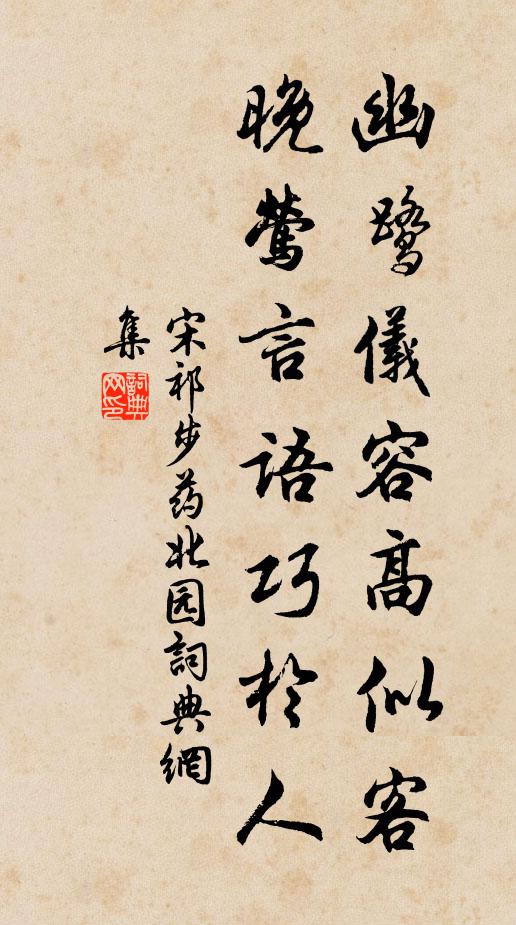 幽鹭儀容高似客
晚莺言語巧於人
宋祁步药北园詞典網
集
詞典
网印